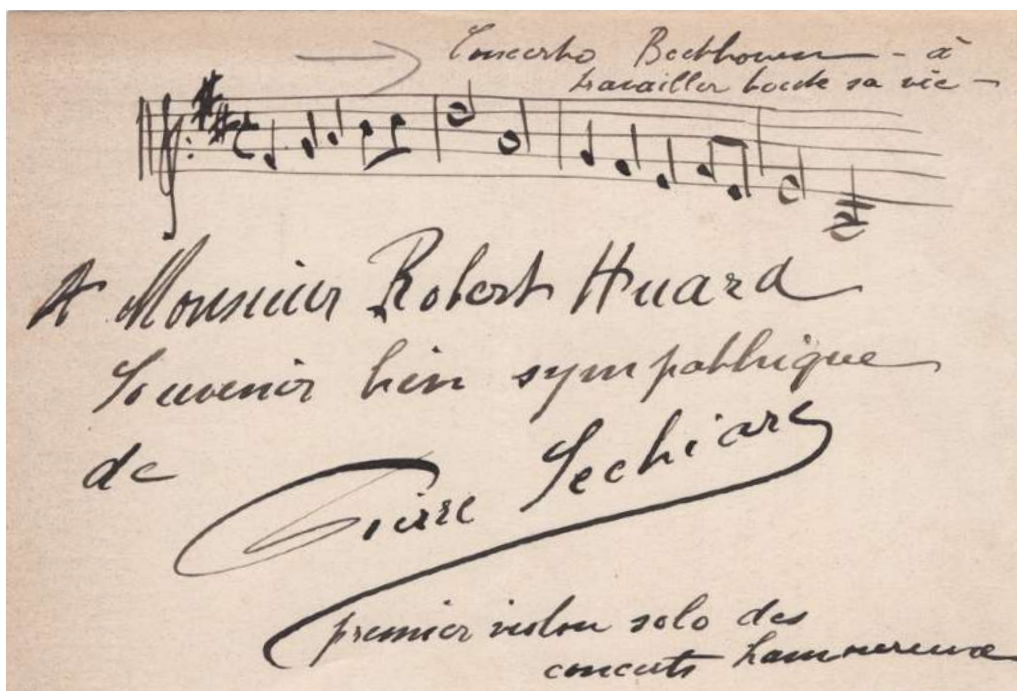 Concerto Beethoven - à
travailler toute sa vie -
A Monsieur Robert Huard
Souvenir bien sympathique
de Pierre Sechiari
premier violon solo des
concerts Lamoureux